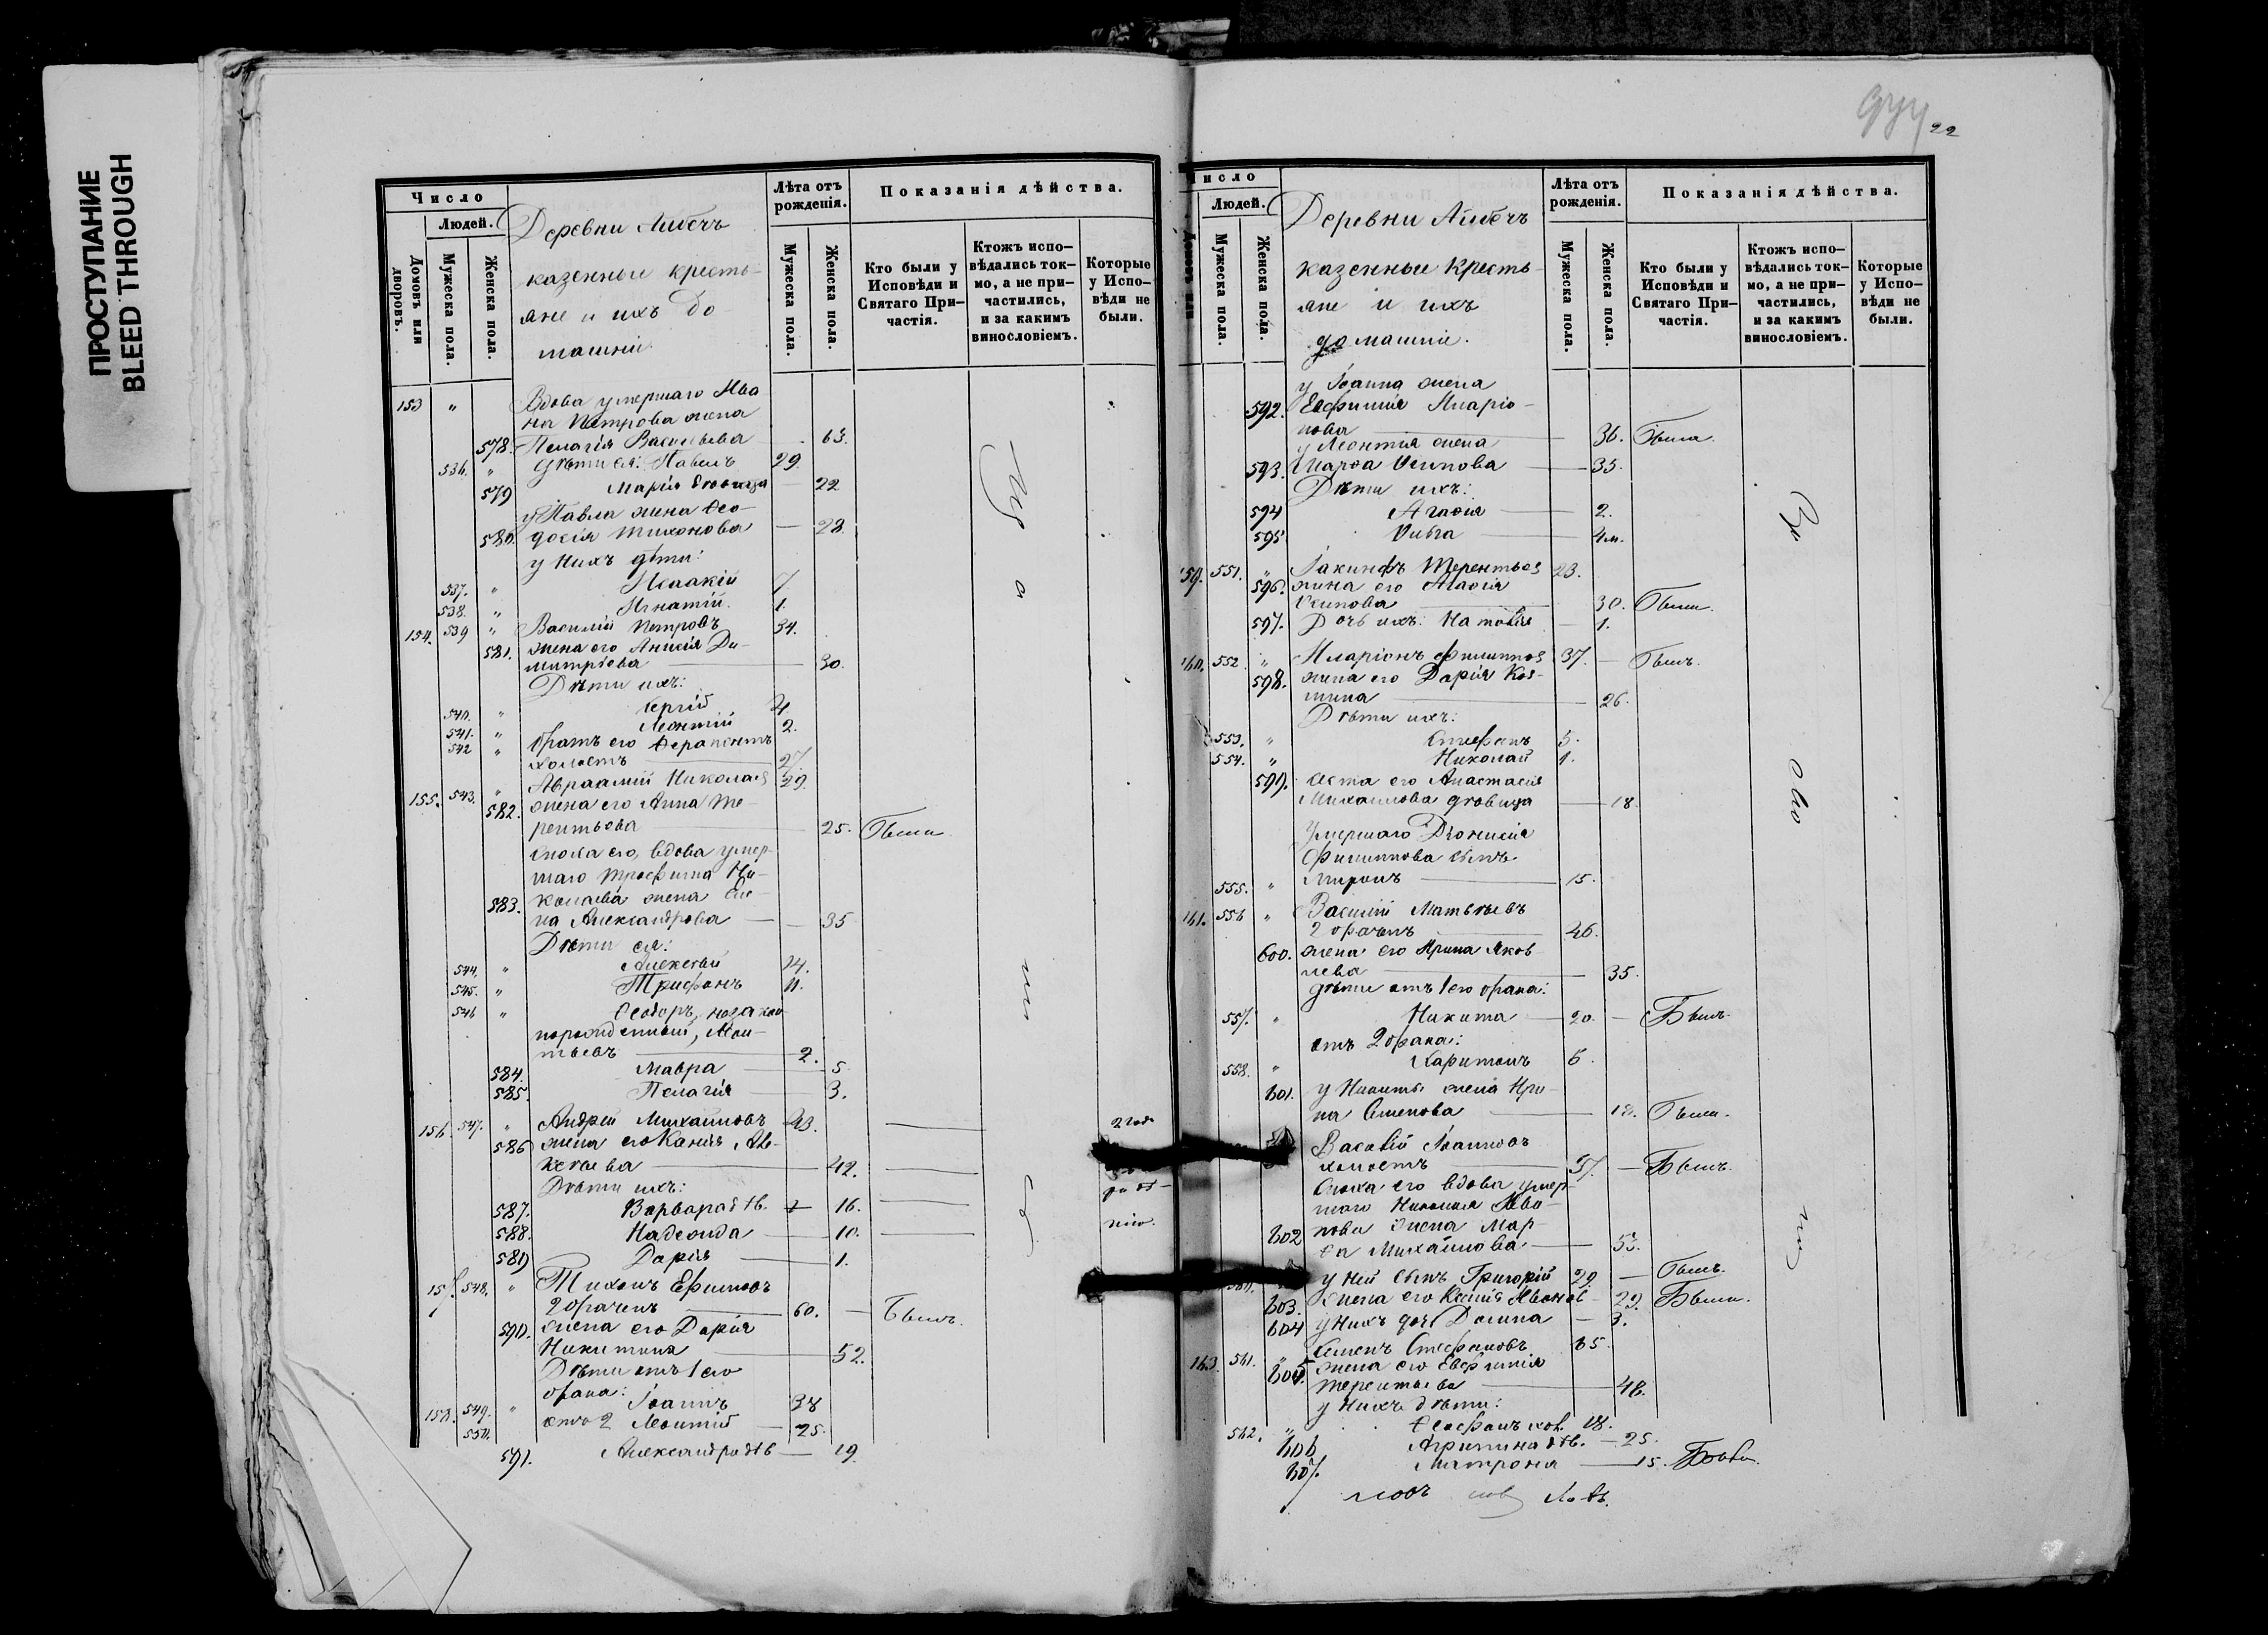 ПРОСТУПАНИЕ
BLEED THROUGH
22
Число
Людей.
Домовъ или дворовъ.
Мужеска пола.
Женска пола.
Деревни
казенные кресть-
яне и ихъ до-
машніи
Лѣта отъ рожденія.
Мужеска пола.
Женска пола.
Показанія дѣйства.
Кто были у Исповѣди и Святаго При-частія.
Ктожъ испо-вѣдались ток-мо, а не при-частились, и за какимъ винословіемъ.
Которые у Испо-вѣди не были.
153 " Вдова умершаго Ива
на Петрова жена
578. Пелагія Васильева 63.
536. " Дѣти ея: Павелъ 29.
579 Марія дѣвица 22
у Павла жена Ѳео-
580. досія Тихонова — 28.
у нихъ дѣти:
537. " Исаакій 7.
538. " Игнатій 1.
154. 539 " Василій Петровъ 34.
581. жена его Анисія Ди-
митріева — 30.
Дѣти ихъ:
540. " Сергій 4.
541. " Леонтій 2.
542 " братъ его Ѳерапонтъ
холостъ — 27.
155. 543. " Авраамій Николаев 29.
582. жена его Анна Те-
рентьева — 25. Были
Сноха его, вдова умер-
шаго Трофима Ни-
583. колаева жена Еле-
на Александрова — 35
Дѣти ея:
544. " Алексѣй 14.
545. " Трифонъ 11.
546 " Ѳеодоръ, незакон
норожденный,
2.
584. Мавра — 5.
585. Пелагія — 3.
156. 547. " Андрей Михайловъ 43. — 2 года
586 жена его Ксенія Але-
ксѣева — 42. —
Дѣти ихъ:
587. Варвара дѣв. — 16. —
588. Надежда — 10. —
589 Дарія — 1.
157. 548. " Тихонъ Ефимовъ
2 браченъ — 60. — Былъ.
590. жена его Дарія
Никитина — 52.
Дѣти отъ 1 его
брака:
158. 549. " Іоаннъ 38
550. отъ 2 Леонтій — 25.
591. Александра дѣв — 19.
Число
Людей.
Мужеска пола.
Женска пола.
Деревни
казенные кресть-
яне и ихъ
домашніи.
Лѣта отъ рожденія.
Мужеска пола.
Женска пола.
Показанія дѣйства.
Кто были у Исповѣди и Святаго При-частія.
Ктожъ испо-вѣдались ток-мо, а не при-частились, и за какимъ винословіемъ.
Которые у Испо-вѣди не были.
у Іоанна жена
592. Евфимія Иларіо-
нова — 36. Была.
у Леонтія жена
593. Марѳа Осипова — 35.
Дѣти ихъ:
594 Агаѳія — 2.
595. Ольга — 4 м.
159. 551. " Іакинфъ Терентьев 23.
596. жена его Агаѳія
Осипова — 30. Были.
597. Дочь ихъ: Наталія — 1.
160. 552. " Иларіонъ Филиппов 37. — Былъ.
598. жена его Дарія Коз-
мина — 26.
Дѣти ихъ:
553. " Стефанъ 5.
554. " Николай 1.
599. сестра его Анастасія
Михаилова дѣвица — 18.
Умершаго Діонисія
Филиппова сынъ
555. " Миронъ — 15.
161. 556 " Василій Матвѣевъ
2 браченъ — 46.
600. жена его Ирина Яков
лева — 35.
дѣти отъ 1 его брака:
557. " Никита — 20. — Былъ.
отъ 2 брака:
558. " Харитонъ 6.
601. у Никиты жена Ири-
на Семенова — 18. Были.
Василій Іоаннов
холостъ — 57. — Былъ.
Сноха его вдова умер-
шаго Николая Ива-
602 нова жена Мар-
ѳа Михайлова — 53.
у ней сынъ Григорій 29. — Былъ.
603. жена его Ксенія Иванов — 29. Были.
604 у нихъ дочь Домна — 3.
163 561. " Семенъ Стефановъ 65.
605. жена его Евфимія
Терентьева — 48.
у нихъ дѣти:
562. " Ѳеофанъ хол. 18.
606 Агрипина дѣв. — 25.
607. Матрона — 15.